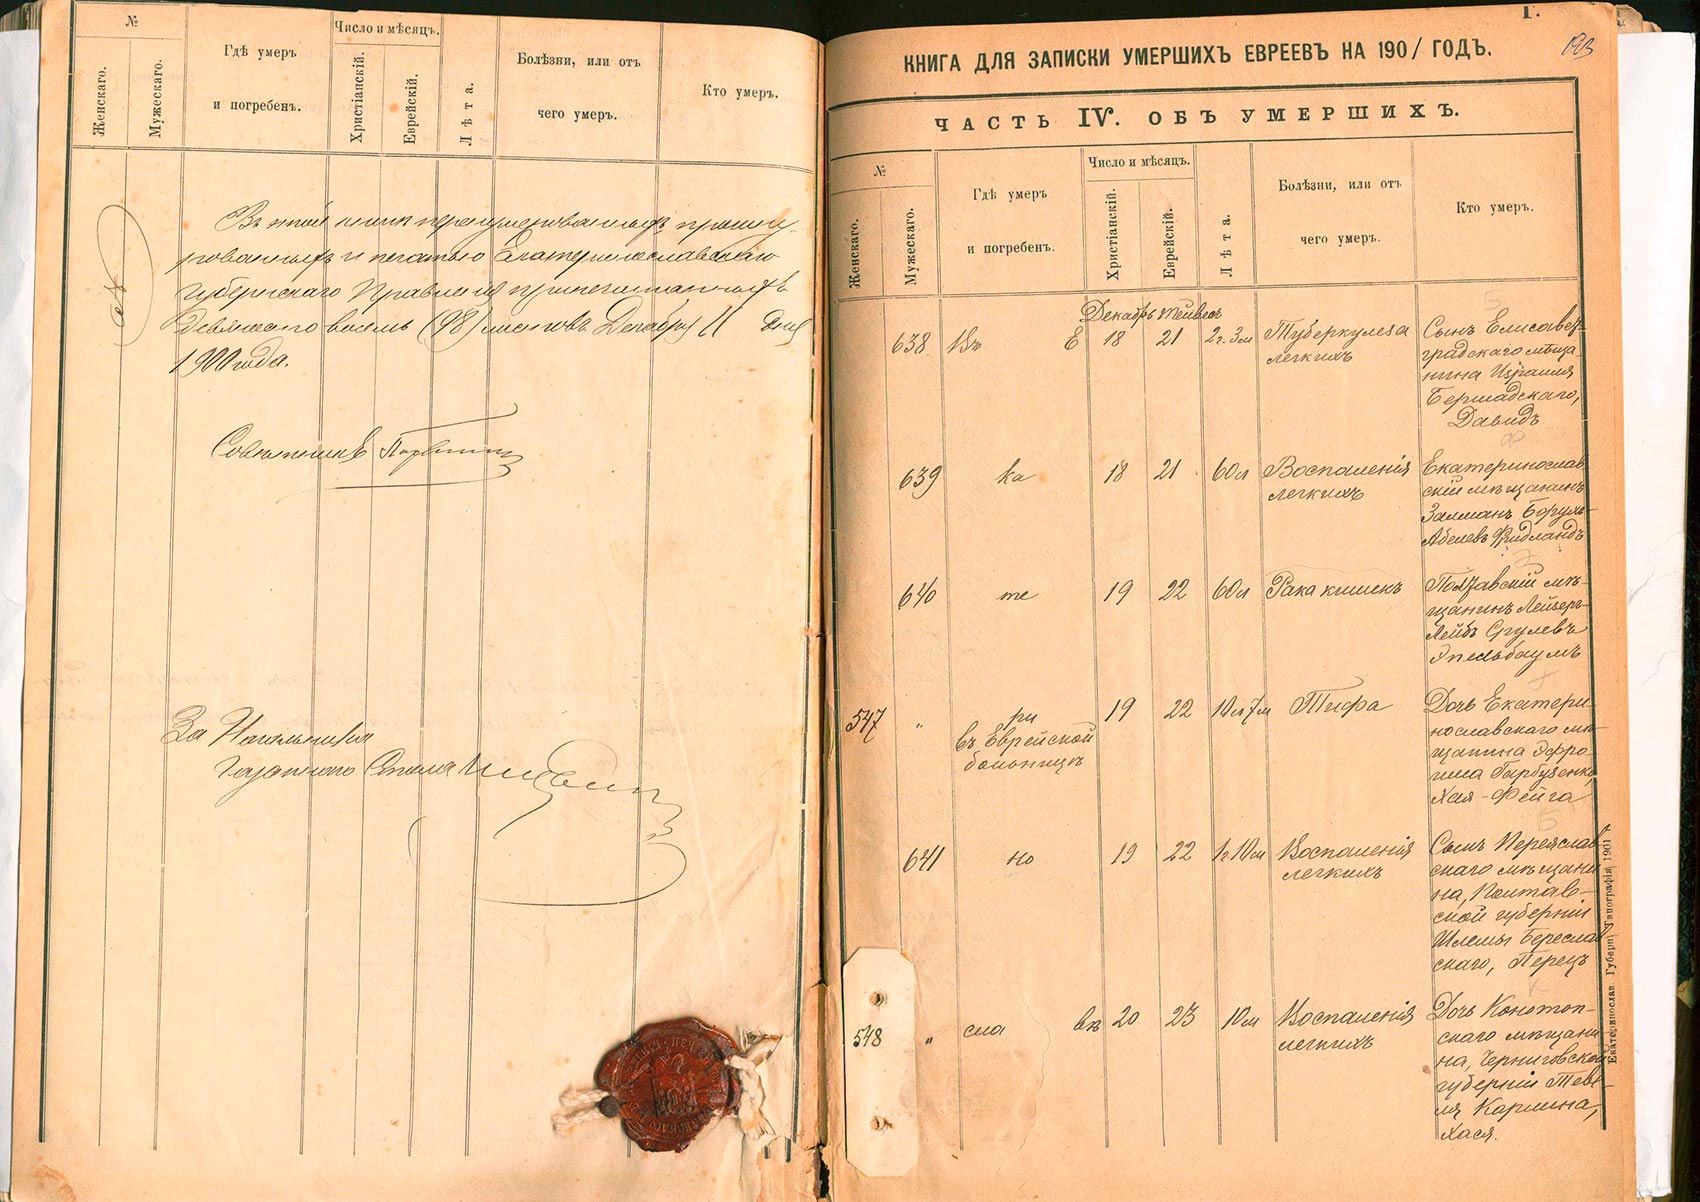 №
Женскаго.
Мужескаго.
Гдѣ умеръ
и погребенъ.
Число и мѣсяцъ.
Христіанскій.
Еврейскій.
Лѣта.
Болѣзни, или отъ
чего умеръ.
Кто умеръ.
98
Въ этой книгѣ перенумерованныхъ, прошну-
рованныхъ и печатью Екатеринославскаго
Губернскаго Правленія припечатанныхъ
девяносто восемь (98) листовъ Декабря 11 дня
1900 года.
Совѣтникъ
За Начальника
Газетнаго Стола
1.
193
КНИГА ДЛЯ ЗАПИСКИ УМЕРШИХЪ ЕВРЕЕВЪ НА 1901 ГОДЪ.
ЧАСТЬ IV. ОБЪ УМЕРШИХЪ.
№
Женскаго.
Мужескаго.
Гдѣ умеръ
и погребенъ.
Число и мѣсяцъ.
Христіанскій.
Еврейскій.
Лѣта.
Болѣзни, или отъ
чего умеръ.
Кто умеръ.
Декабрь Тейвесъ
638 Въ Е 18 21 2г. 3м Туберкулеза
легкихъ
Сынъ Елисавет-
градскаго мѣща-
нина Израиля
Бершадскаго,
Давидъ
639 ка 18 21 60л Воспаленія
легкихъ
Екатеринослав
скій мѣщанинъ
Залманъ Борухъ-
Абелевъ Фридландъ
640 те 19 22 60л Рака кишекъ
Полтавскій мѣ-
щанинъ Лейзеръ-
Лейбъ Срулевъ
Эпельбаумъ
547 " ри
въ Еврейской
больницѣ
19 22 10л 7м Тифа
Дочь Екатери-
нославскаго мѣ-
щанина Эфро-
има Гарбузенко,
Хая-Фейга
641 но 19 22 1г 10м Воспаленія
легкихъ
Сынъ Переяслав
скаго мѣщани
на, Полтав-
ской губерніи
Шлемы Береслав-
скаго, Перецъ
548 " сла вѣ 20 23 10м Воспаленія
легкихъ
Дочь Конотоп-
скаго мѣщани-
на, Черниговской
губерніи Теве-
ля Карлина,
Хася.
Екатеринослав. Губерн. Типографія 1901 г.